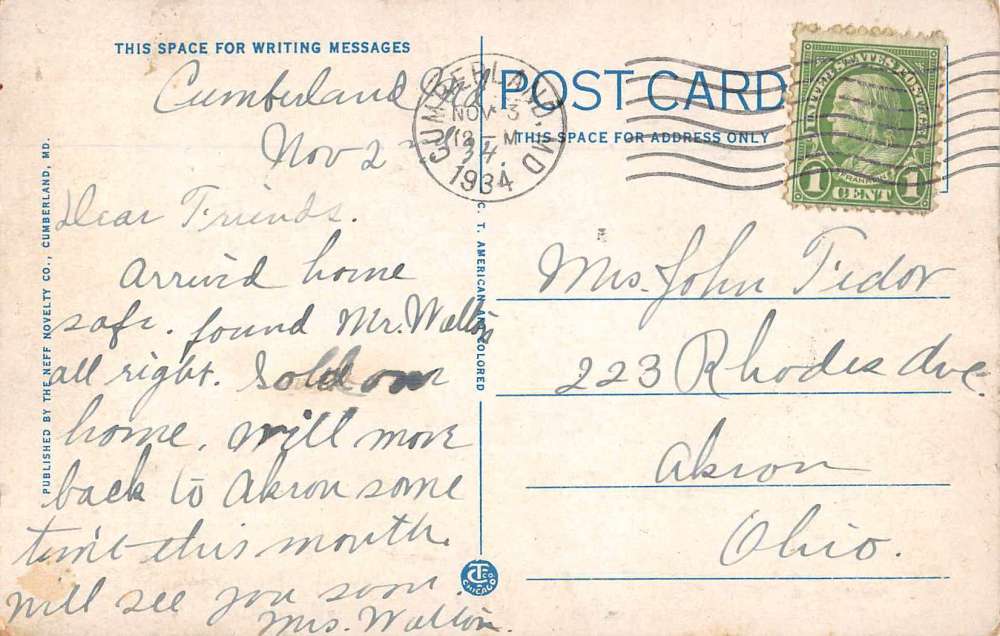 THIS SPACE FOR WRITING MESSAGES
Cumberland Md
Nov 2 - 34.
Dear Friends.
Arrivd home
safe. found Mr. Walton
all right. Sold our
home. will move
back to Akron some
time this month.
Will see you soon.
Mrs. Walton.
PUBLISHED BY THE NEFF NOVELTY CO., CUMBERLAND, MD.
C. T. AMERICAN ART COLORED
CTCo
CHICAGO
POST CARD
THIS SPACE FOR ADDRESS ONLY
CUMBERLAND, MD
NOV 3
12 - M
1934
UNITED STATES POSTAGE
FRANKLIN
1 CENT 1
Mrs. John Fidor
223 Rhodes Ave
Akron
Ohio.